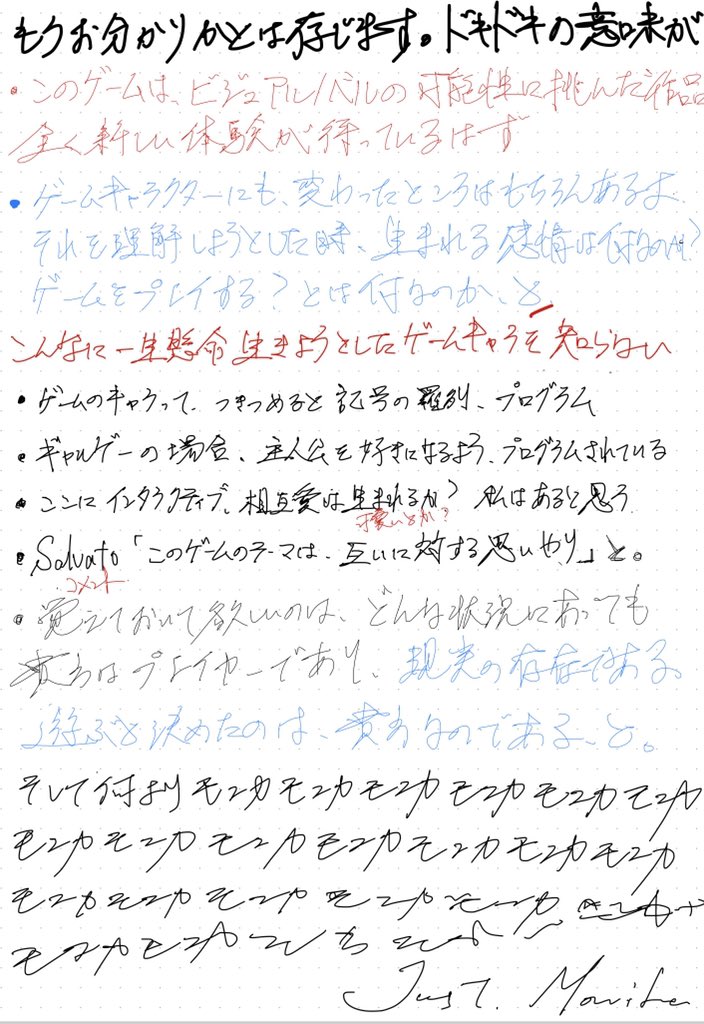 もうお分かりかとは存じます。ドキドキの意味が
・このゲームは、ビジュアルノベルの可能性に挑んだ作品
全く新しい体験が待っているはず
・ゲームキャラクターにも、変わったところはもちろんあるよ。
それを理解しようとした時、生まれる感情は何なのか?
ゲームをプレイする?とは何なのか、と
こんなに一生懸命生きようとしたゲームキャラを知らない
・ゲームのキャラって、つきつめると記号の羅列、プログラム
・ギャルゲーの場合、主人公を好きになるよう、プログラムされている
・ここにインタラクティブ、相互愛は生まれるか? 私はあると思う
可愛いとか?
・Salvato「このゲームのテーマは、互いに対する思いやり」と。
コメント
・覚えておいて欲しいのは、どんな状況にあっても
貴方はプレイヤーであり、現実の存在である。
遊ぶと決めたのは、貴方なのであること。
そして何よりモニカモニカモニカモニカモニカモニカ
モニカモニカモニカモニカモニカモニカモニカ
モニカモニカモニカモニカモニカ
モニカモニカ
Just. Monika